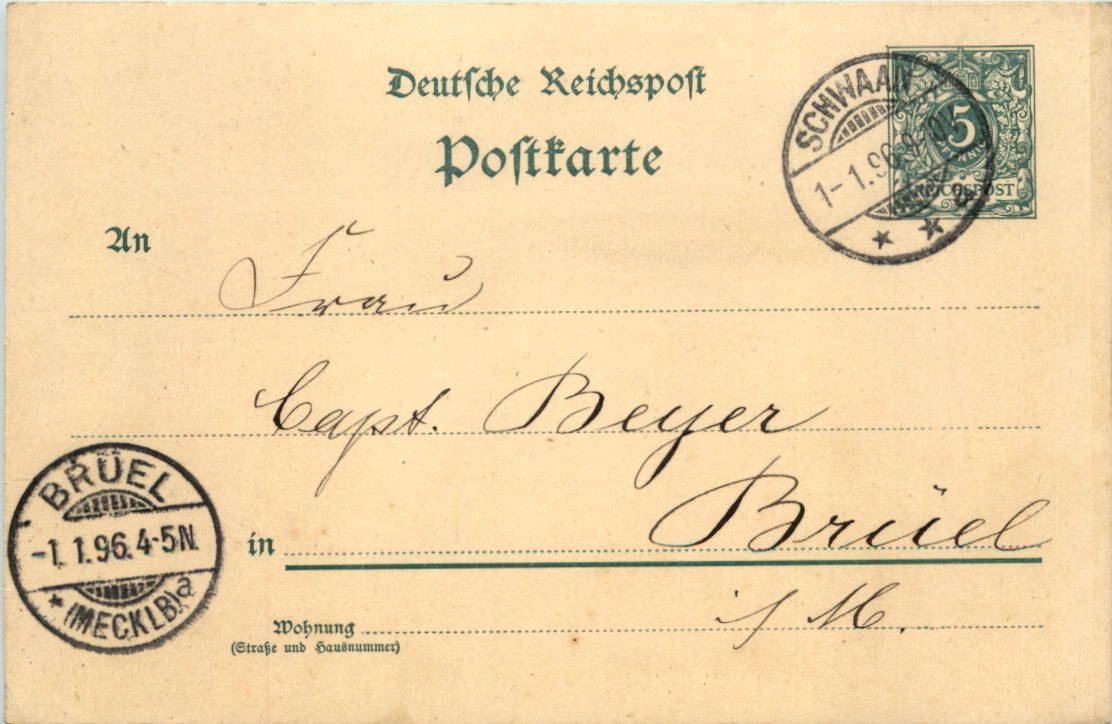 Deutsche Reichspost
Postkarte
SCHWAAN
1-1.96.9-10V.
5
REICHSPOST
An
Frau
Capt. Beyer
BRÜEL
-1.1.96.4-5N.
(MECKLB)a
in Brüel
Wohnung i/M.
(Straße und Hausnummer)